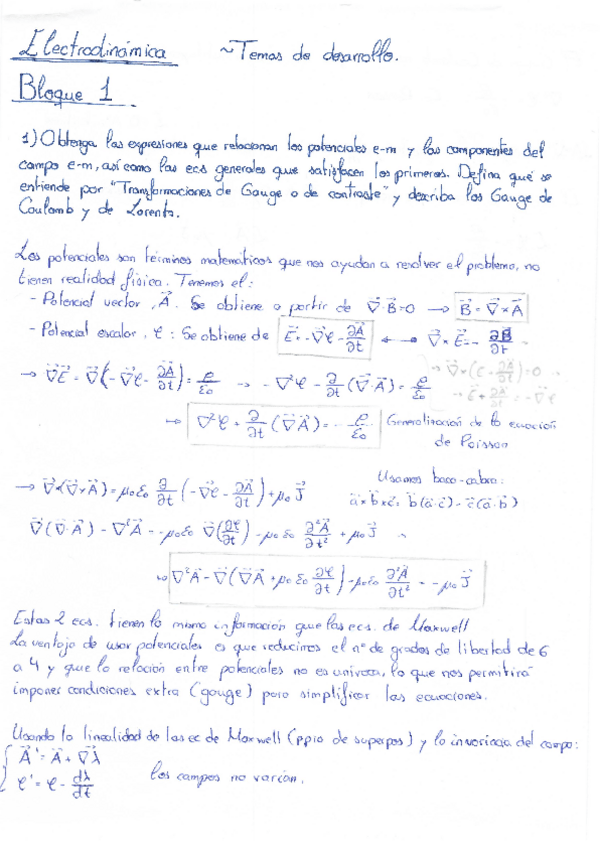 Electrodinámica ~Temas de desarrollo.
Bloque 1
1) Obtenga las expresiones que relacionan los potenciales e-m y las componentes del
campo e-m, así como las ecs generales que satisfacen los primeros. Defina qué se
entiende por "Transformaciones de Gauge o de contraste" y describa los Gauge de
Coulomb y de Lorentz.
Los potenciales son términos matemáticos que nos ayudan a resolver el problema, no
tienen realidad física. Tenemos el:
- Potencial vector, A⃗. Se obtiene a partir de ∇⃗·B⃗=0 → B⃗ = ∇⃗×A⃗
- Potencial escalar, φ: Se obtiene de E⃗ = -∇⃗φ - ∂A⃗/∂t ← → ∇⃗×E⃗ = - ∂B⃗/∂t
→ ∇⃗×(E⃗ - ∂A⃗/∂t)=0
→ ∇⃗E⃗ = ∇⃗(-∇⃗φ - ∂A⃗/∂t) = ρ/ε₀ → -∇²φ - ∂/∂t (∇⃗·A⃗) = ρ/ε₀ → E⃗ + ∂A⃗/∂t = -∇⃗φ
↪ ∇²φ + ∂/∂t (∇⃗A⃗) = - ρ/ε₀ Generalización de la ecuación
de Poisson
→ ∇⃗×(∇⃗×A⃗) = μ₀ε₀ ∂/∂t (-∇⃗φ - ∂A⃗/∂t) + μ₀J⃗ Usamos baca-cabra:
a⃗×b⃗×c⃗ = b⃗(a⃗·c⃗) - c⃗(a⃗·b⃗)
∇⃗(∇⃗·A⃗) - ∇²A⃗ = -μ₀ε₀ ∇⃗(∂φ/∂t) - μ₀ε₀ ∂²A⃗/∂t² + μ₀J⃗
↪ ∇²A⃗ - ∇⃗(∇⃗A⃗ + μ₀ε₀ ∂φ/∂t) - μ₀ε₀ ∂²A⃗/∂t² = -μ₀J⃗
Estas 2 ecs. tienen la misma información que las ecs. de Maxwell
La ventaja de usar potenciales es que reducimos el nº de grados de libertad de 6
a 4 y que la relación entre potenciales no es unívoca, lo que nos permitirá
imponer condiciones extra (gauge) para simplificar las ecuaciones.
Usando la linealidad de las ec de Maxwell (ppio de superpos) y la invarincia del campo:
A⃗' = A⃗ + ∇⃗λ
φ' = φ - dλ/dt los campos no varían.